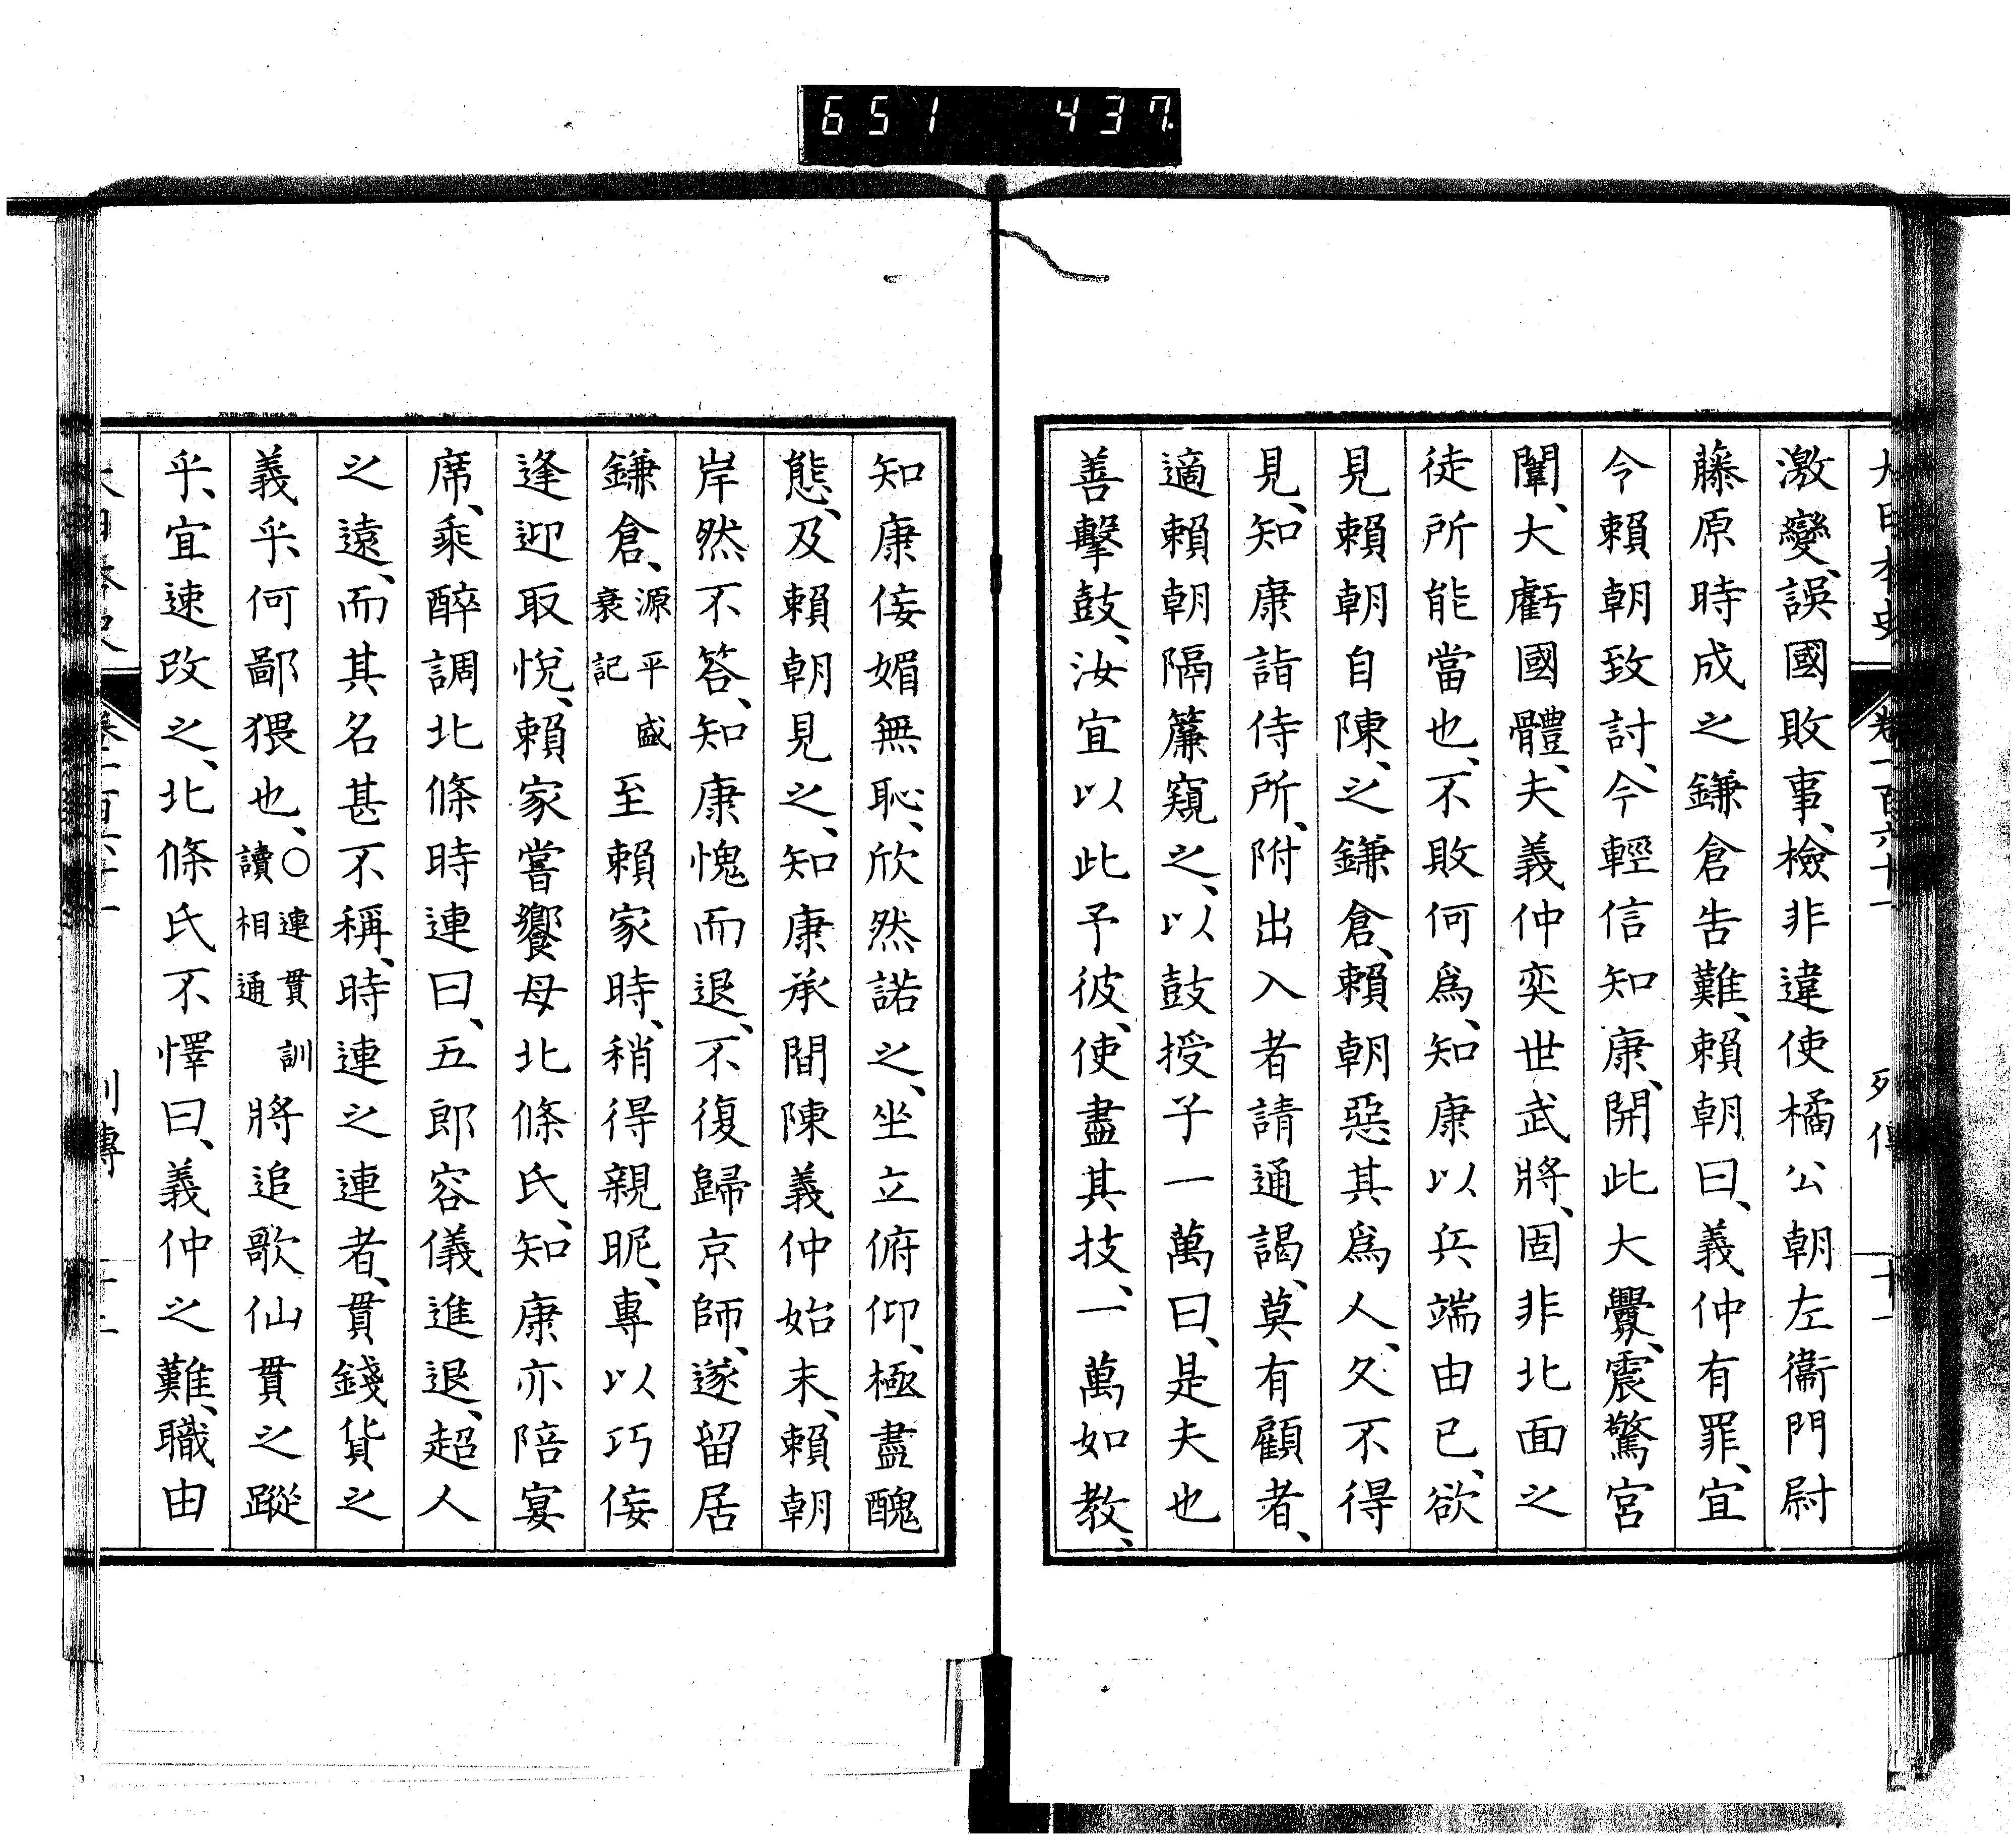 651 437
大日本史 卷一百六十一 列傳 十一
激變、誤國敗事、檢非違使橘公朝左衞門尉
藤原時成之鎌倉告難、賴朝曰、義仲有罪、宜
令賴朝致討、今輕信知康、開此大釁、震驚宮
闈、大虧國體、夫義仲奕世武將、固非北面之
徒所能當也、不敗何爲、知康以兵端由己、欲
見賴朝自陳、之鎌倉、賴朝惡其爲人、久不得
見、知康詣侍所、附出入者請通謁、莫有顧者、
適賴朝隔簾窺之、以鼓授子一萬曰、是夫也
善擊鼓、汝宜以此予彼、使盡其技、一萬如教、
知康佞媚無恥、欣然諾之、坐立俯仰、極盡醜
態、及賴朝見之、知康承間陳義仲始末、賴朝
岸然不答、知康愧而退、不復歸京師、遂留居
鎌倉、源平盛衰記至賴家時、稍得親昵、專以巧佞
逢迎取悅、賴家嘗饗母北條氏、知康亦陪宴
席、乘醉調北條時連曰、五郎容儀進退、超人
之遠、而其名甚不稱、時連之連者、貫錢貨之
義乎、何鄙猥也、○連貫訓讀相通將追歌仙貫之蹤
乎、宜速改之、北條氏不懌曰、義仲之難、職由